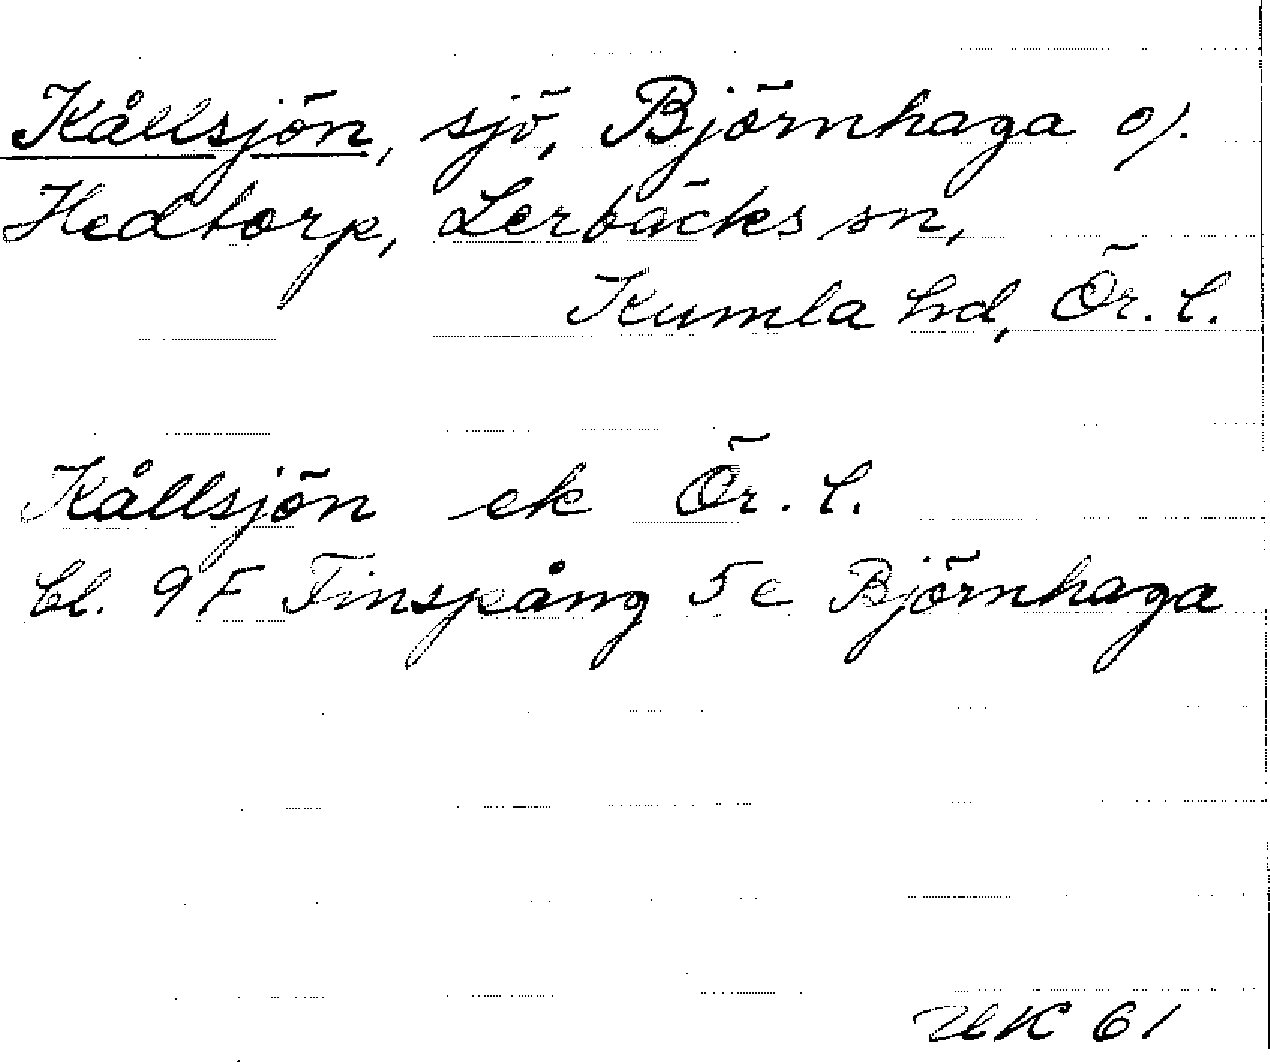 Kållsjön, sjö, Björnhaga o).
Hedtorp, Lerbäcks sn,
Kumla hd, Ör. l.
Kållsjön ek Ör. l.
bl. 9F Finspång 5c Björnhaga
UK 61